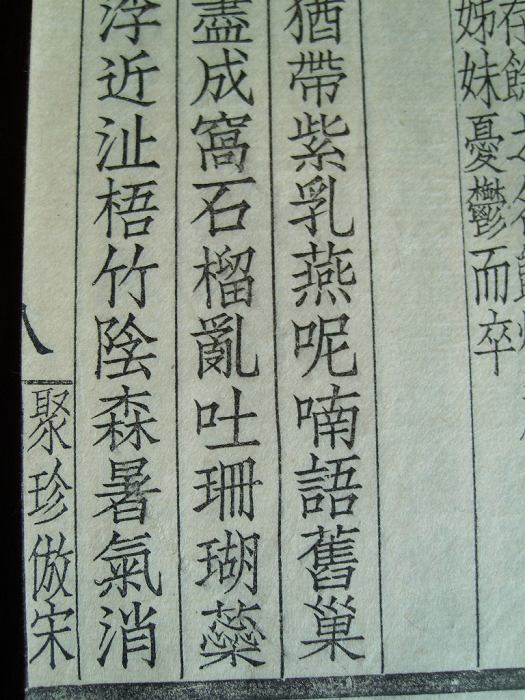 姊妹憂鬱而卒
猶帶紫乳燕呢喃語舊巢
盡成窩石榴亂吐珊瑚蘂
浮近沚梧竹陰森暑氣消
八
聚珍倣宋